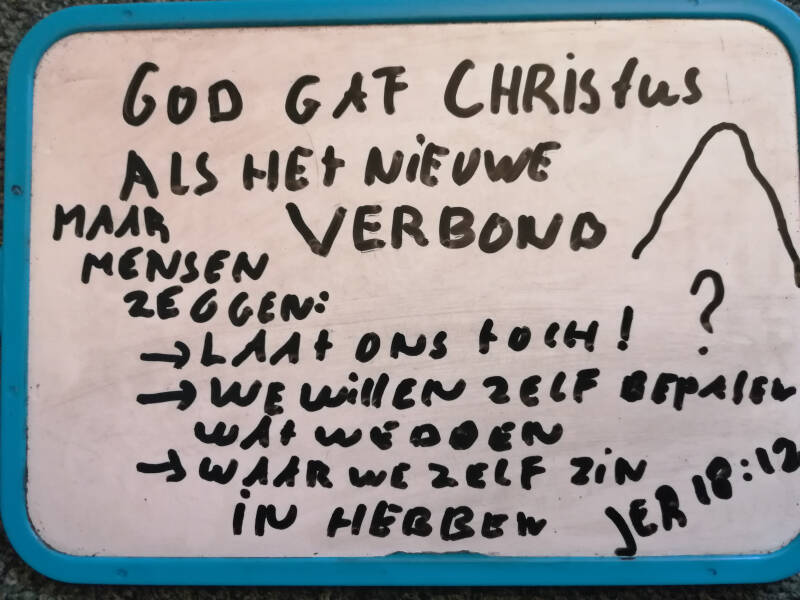 GOD GAF CHRIStus
ALS HEt NiEUWE
VERBOND
MAAR
MENSEN
ZEGGEN:
→ LAAt ONS tOCH!
?
→ WE WillEN ZELF BEPALEN
WAt WE DOEN
→ WAAR WE ZELF ZiN
iN HEBBEN
JER 18:12